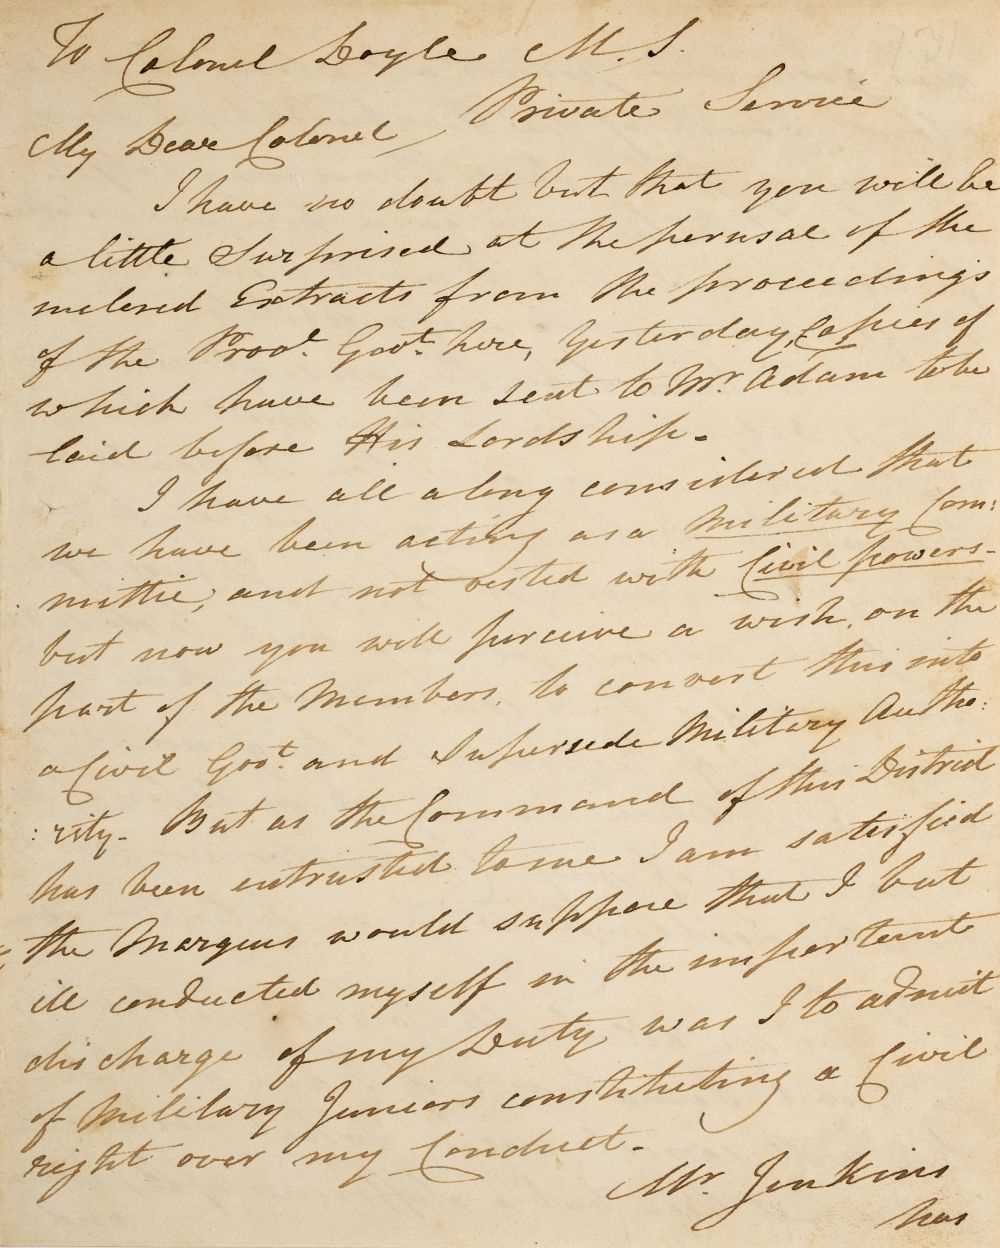 To Colonel Doyle M. S.
Private Service
My Dear Colonel,
I have no doubt but that you will be
a little Surprised at the perusal of the
Extracts from the proceedings
of the Provl. Govt. here, Yesterday, Copies of
which have been sent to Mr. Adam to be
laid before His Lordship.
I have all along considered that
we have been acting as a Military Com:
mittie, and not vested with Civil powers-
but now you will perceive a wish, on the
part of the Members, to convert this into
a Civil Govt. and Supersede Military Autho:
:rity- But as the Command of this District
has been entrusted to me I am satisfied
the Marquis would suppose that I but
ill conducted myself in the important
discharge of my Duty was I to admit
of Military Juniors constituting a Civil
right over my Conduct.
Mr. Jenkins
has